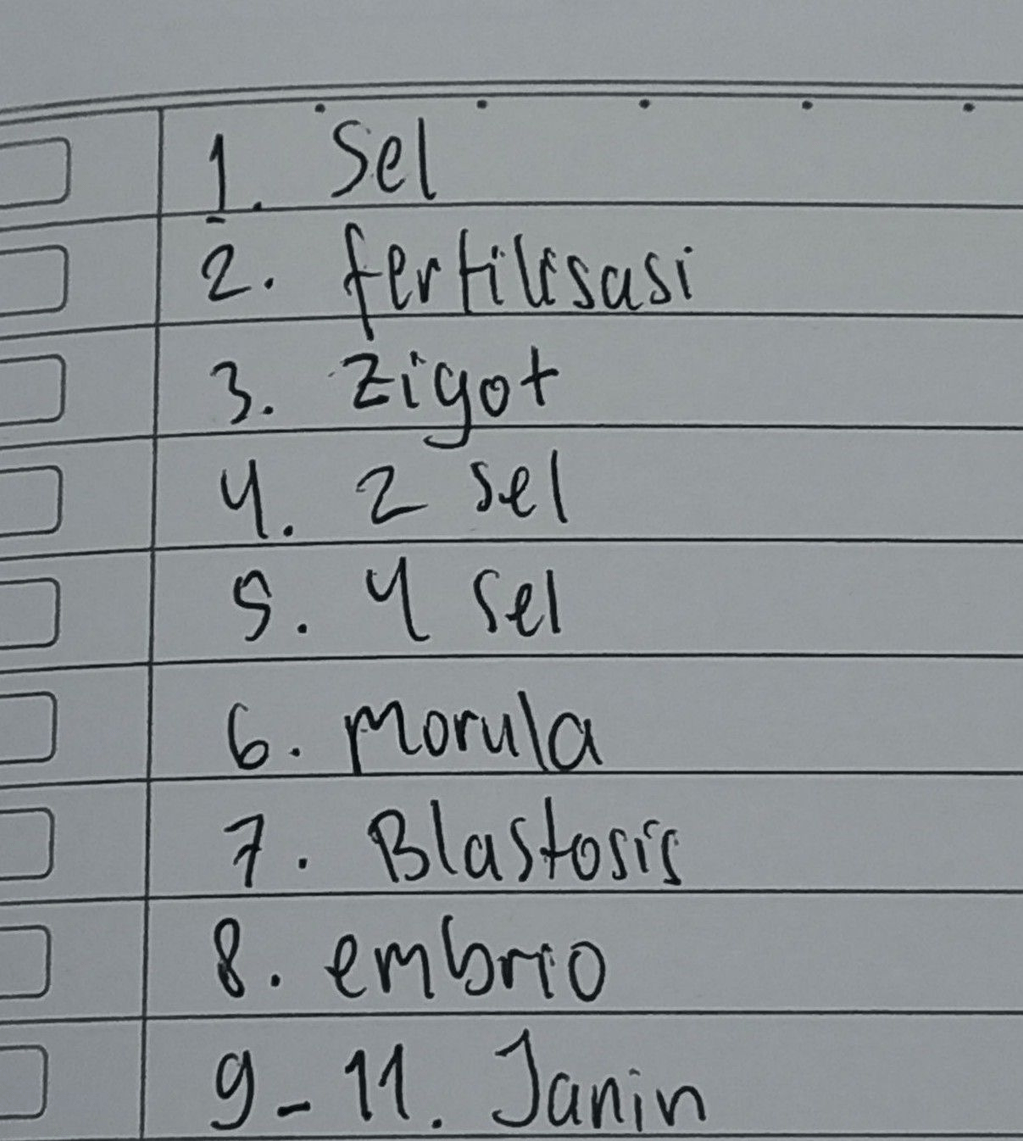 1. Sel
2. fertilisasi
3. Zigot
4. 2 sel
5. 4 sel
6. Morula
7. Blastosis
8. embrio
9-11. Janin